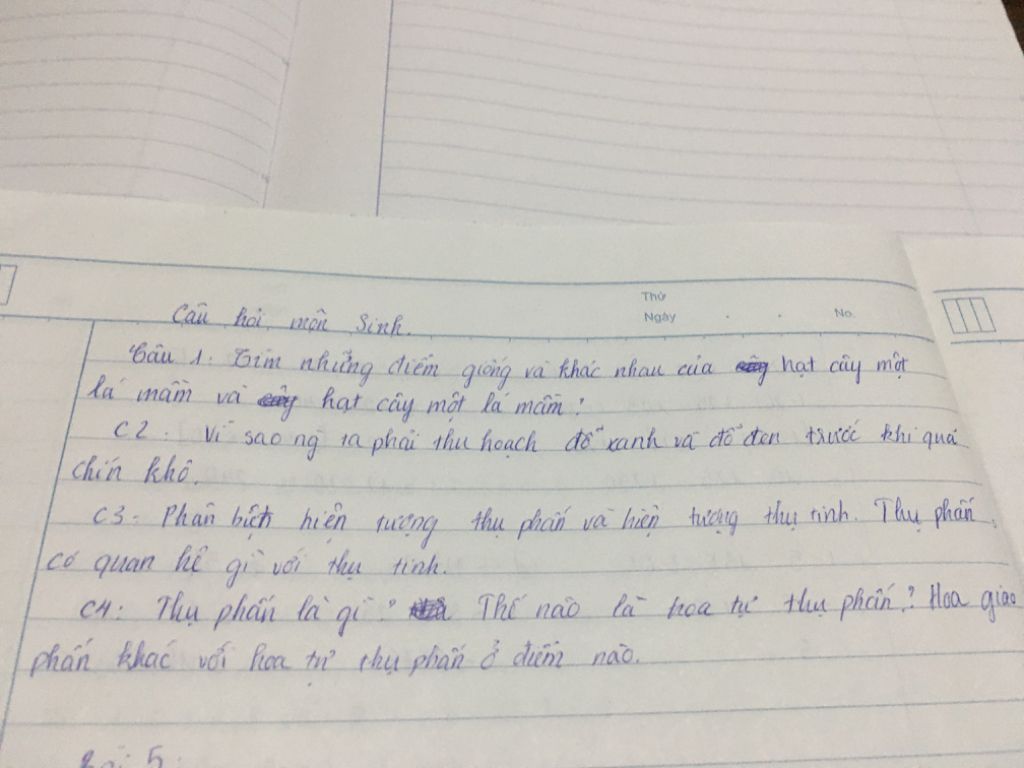 Thứ
Ngày . . No.
Câu hỏi môn Sinh.
Câu 1: Tìm những điểm giống và khác nhau của hạt cây một
lá mầm và hạt cây một lá mầm?
C2: Vì sao ng ta phải thu hoạch đỗ xanh và đỗ đen trước khi quá
chín khô.
C3: Phân biệt hiện tượng thụ phấn và hiện tượng thụ tinh. Thụ phấn
có quan hệ gì với thụ tinh.
C4: Thụ phấn là gì? Thế nào là hoa tự thụ phấn? Hoa giao
phấn khác với hoa tự thụ phấn ở điểm nào.